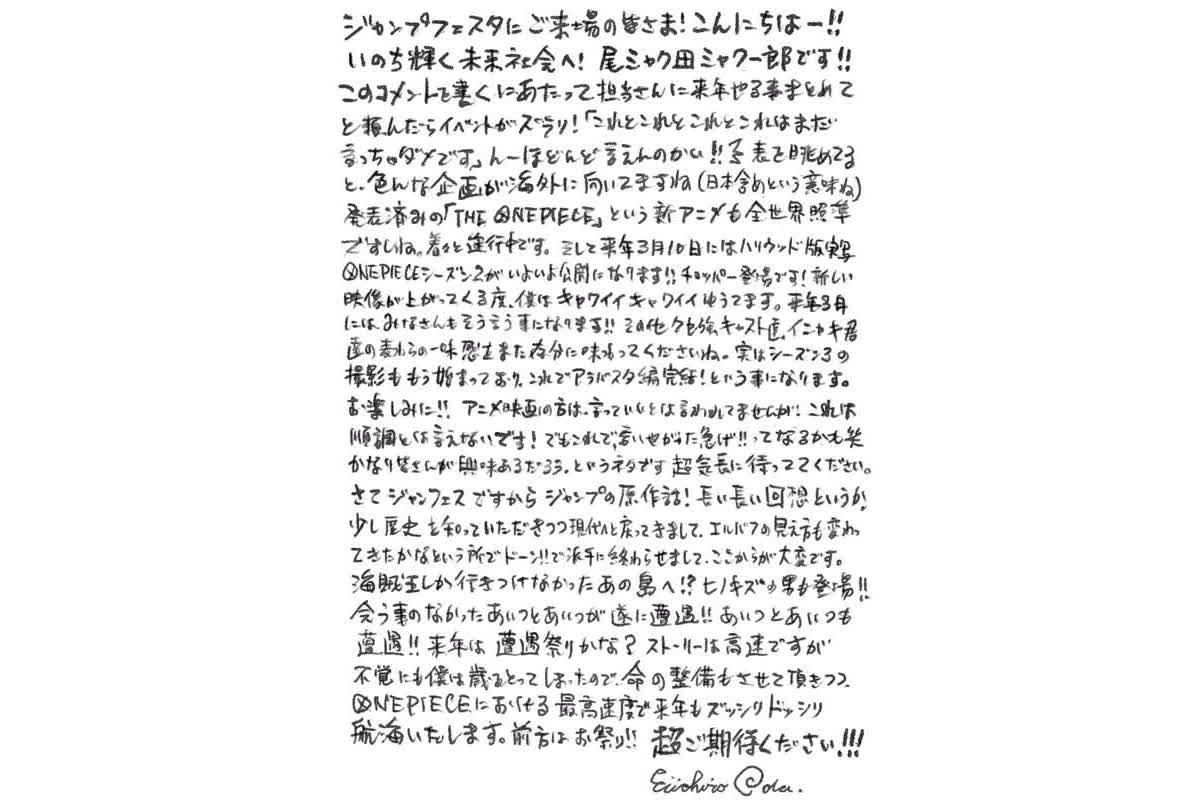 ジャンプフェスタにご来場の皆さま!こんにちはー!!
いのち輝く未来社会へ! 尾ミャク田ミャク一郎です!!
このコメントを書くにあたって担当さんに来年やる事まとめて
と頼んだらイベントがズラリ!「これとこれとこれとこれはまだ
言っちゃダメです」んーほとんど言えんのかい!!予表を眺めてる
と、色んな企画が海外に向いてますね(日本含めという意味ね)
発表済みの「THE ONE PIECE」という新アニメも全世界照準
ですしね。着々と進行中です。そして来年3月10日にはハリウッド版実写
ONE PIECEシーズン2がいよいよ公開になります!!チョッパー登場です!新しい
映像が上がってくる度、僕はキャワイイキャワイイゆうてます。来年3月
にはみなさんもそう言う事になります!!その他クセ強キャスト達、イニャキ君
達の麦わらの一味感をまた存分に味わってくださいね。実はシーズン3の
撮影ももう始まっており、これでアラバスタ編完結!という事になります。
お楽しみに!! アニメ映画の方は、言っていいとは言われてませんが!これは
順調とは言えないです!でもこれで、言いやがった急げ!!ってなるかも笑
かなり皆さんが興味あるだろう、というネタです 超気長に待っててください。
さてジャンフェスですからジャンプの原作話!長い長い回想というか、
少し歴史を知っていただきつつ現代へと戻ってきまして、エルバフの見え方も変わっ
てきたかなという所でドーン!!で派手に終わらせまして、ここからが大変です。
海賊王しか行きつけなかったあの島へ!?ヒノキズの男も登場!!
会う事のなかったあいつとあいつが遂に遭遇!!あいつとあいつも
遭遇!!来年は遭遇祭りかな?ストーリーは高速ですが
不覚にも僕は歳をとってしまったので、命の整備もさせて頂きつつ、
ONE PIECEにおける最高速度で来年もズッシリドッシリ
航海いたします。前方はお祭り!! 超ご期待ください!!!
Eiichiro Oda.